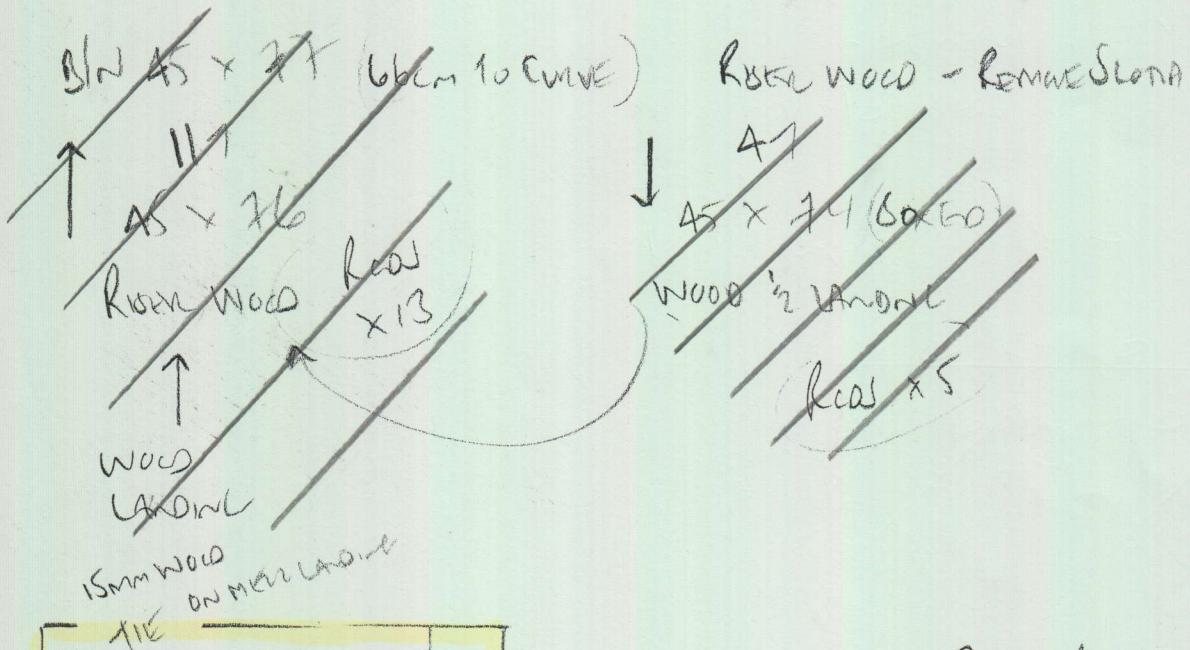 B/N 45 × 77 (66cm to CURVE)
45 × 76
RISER WOOD
RODS
× 13
WOOD
LANDING
15mm WOOD
ON MEZZ LANDING
RISER WOOD - REMOVE
47
45 × 74 (BOXED)
WOOD ½ LANDING
RODS × 5